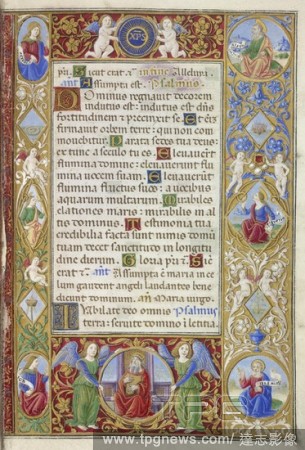 XPS
pri. Sicut erat et in. Alleluia.
ant Assumpta est. Psalmus
Dominus regnauit decorem
indutus est: indutus est dns
fortitudinem et precinxit se. Et eni
firmauit orbem terre: qui non com
mouebitur. Parata sedes tua deus:
ex tunc a seculo tu es. Eleuauerūt
flumina domine: eleuauerunt flu
mina uocem suam. Eleuauerūt
flumina fluctus suos: a uocibus
aquarum multarum. Mirabiles
elationes maris: mirabilis in al
tis dominus. Testimonia tua
credibilia facta sunt nimis domū
tuam decet sanctitudo in longitu
dine dierum. Gloria pri et. Sic
erat et. ant Assumpta est maria in ce
lum gaudent angeli laudantes bene
dicunt dominum. añ Maria virgo.
Iubilate deo omnis Psalmus
terra: seruite domino in letitia.
www.tpgnews.com/ 達志影像